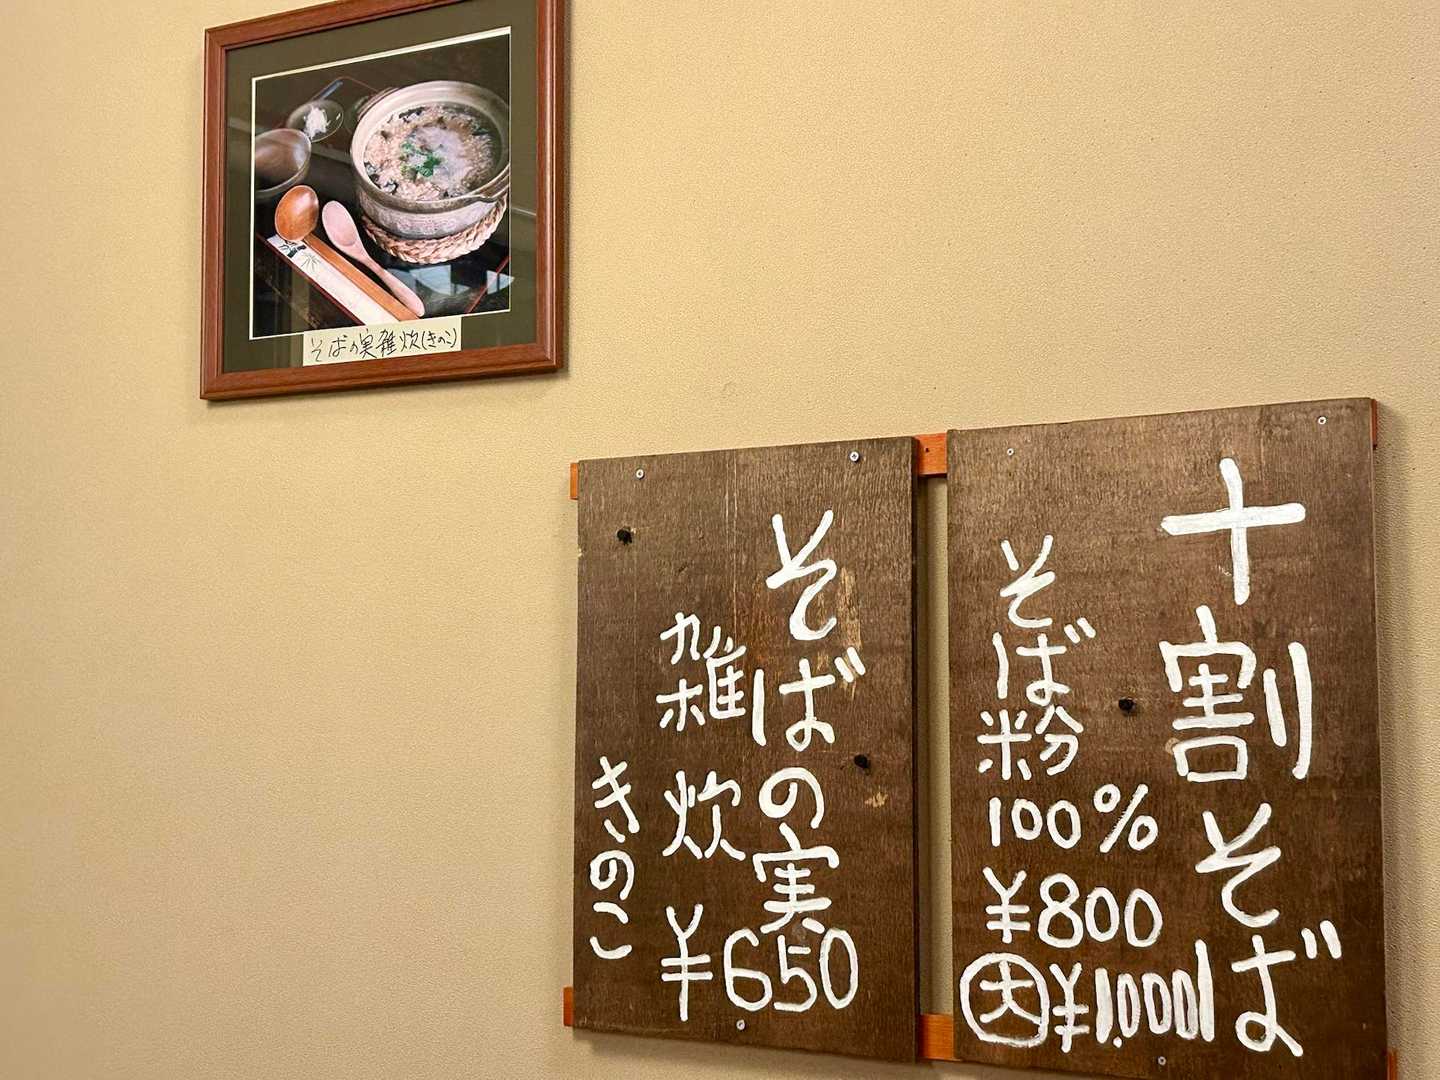 そばの実雑炊(きのこ)
十割そば
そば粉
100%
¥800
大¥1,000
そばの実
雑炊
きのこ
¥650